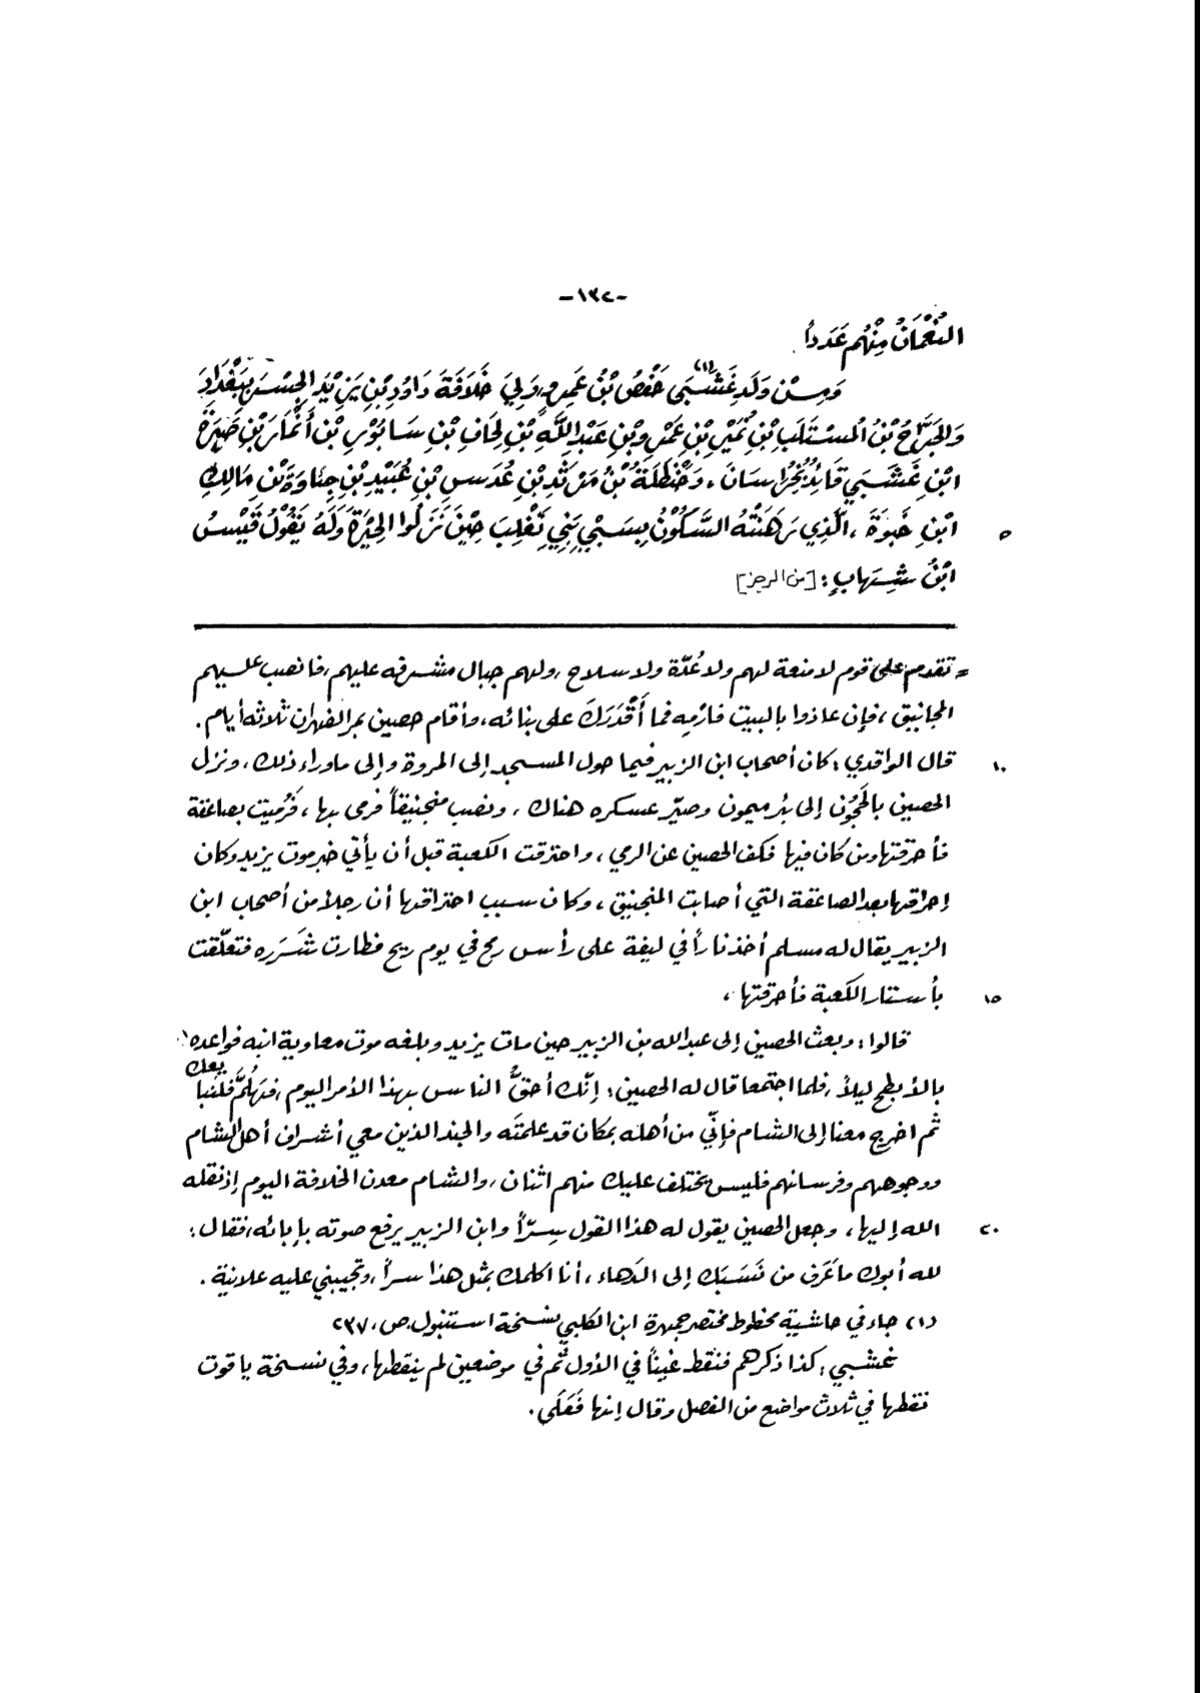 -١٣٢-
النُّعْمَانُ مِنْهُم عَدَداً.
وَمِنْ وَلَدِ غَشَبَى (١) حَفْصُ بْنُ عَمِرٍو، وَلِيَ خَلَافَةَ دَاوُدِ بْنِ يَزِيْدَ الجِسْرَ بِبَغْدَادَ
وَالجَرَّاحُ بْنُ المُسْتَلَبِ بْنِ نُمَيْرِ بْنِ عَمْرِو بْنِ عَبْدِ اللَّهِ بْنِ لِحَافِ بْنِ سَابُوْرِ بْنِ أَنْمَارَ بْنِ ضَبِرَةَ
ابْنِ غَشَبَي قَائِدٌ بِخُرَاسَانَ، وَحَنْظَلَةُ بْنُ مَرْثَدِ بْنِ عُدَسِ بْنِ عُبَيْدِ بْنِ جِئَاوَةَ بْنِ مَالِكِ
ابْنِ حَبَوَةَ، الَّذِي رَهَنَتْهُ السَّكُوْنُ بِسَبْيِ بَنِي تَغْلِبَ حِيْنَ نَزَلُوا الحِيْرَةَ وَلَهُ يَقُوْلُ قَيْسُ ٥
ابْنُ شِهَابٍ: [من الرجز]
= تقدم على قوم لا منعة لهم ولا عُدّة ولا سلاح، ولهم جبال مشرفه عليهم، فانصب عليهم
المجانيق، فإن عاذوا بالبيت فارمِه فما أَقْدَرَكَ على بنائه، وأقام حصين بمر الظهران ثلاثه أيام.
قال الواقدي: كان أصحاب ابن الزبير فيما حول المسجد إلى المروة وإلى ما وراء ذلك، ونزل ١٠
الحصين بالحَجُوْن إلى بئر ميمون وصيّر عسكره هناك، ونصب منجنيقاً فرمى بها، فَرُميت بصاعقة
فأحرقتها ومن كان فيها فكف الحصين عن الرمي، واحترقت الكعبة قبل أن يأتي خبر موت يزيد وكان
إحراقها بعد الصاعقة التي أصابت المنجنيق، وكان سبب احتراقها أن رجلاً من أصحاب ابن
الزبير يقال له مسلم أخذ ناراً في ليفة على رأس رمح في يوم ريح فطارت شَرَره فتعلّقت
بأستار الكعبة فأحرقتها. ١٥
قالوا: وبعث الحصين إلى عبد الله بن الزبير حين مات يزيد وبلغه موت معاوية ابنه فواعده
بالأبطح ليلاً، فلما اجتمعا قال له الحصين: إنّك أحقُّ الناس بهذا الأمر اليوم، فهَلُمَّ فلنبايعك
ثم اخرج معنا إلى الشام فإنّي من أهله بمكان قد علمتَه والجند الذين معي أشراف أهل الشام
ووجوههم وفرسانهم فليس يختلف عليك منهم اثنان، والشام معدن الخلافة اليوم إذ نقله
الله إليها، وجعل الحصين يقول له هذا القول سِرّاً وابن الزبير يرفع صوته بإبائه، فقال: ٢٠
لله أبوك ما عَرَف من نَسَبَك إلى الدَهاء، أنا اكلمك بمثل هذا سراً، وتجيبني عليه علانية.
(١) جاء في حاشية مخطوط مختصر جمهرة ابن الكلبي نسخة استنبول ص، ٢٣٧
غشبي: كذا ذكرهم فنقط غيناً في الأول ثم في موضعين لم ينقطها، وفي نسخة ياقوت
نقطها في ثلاث مواضع من الفصل وقال إنها فَعَلَى.